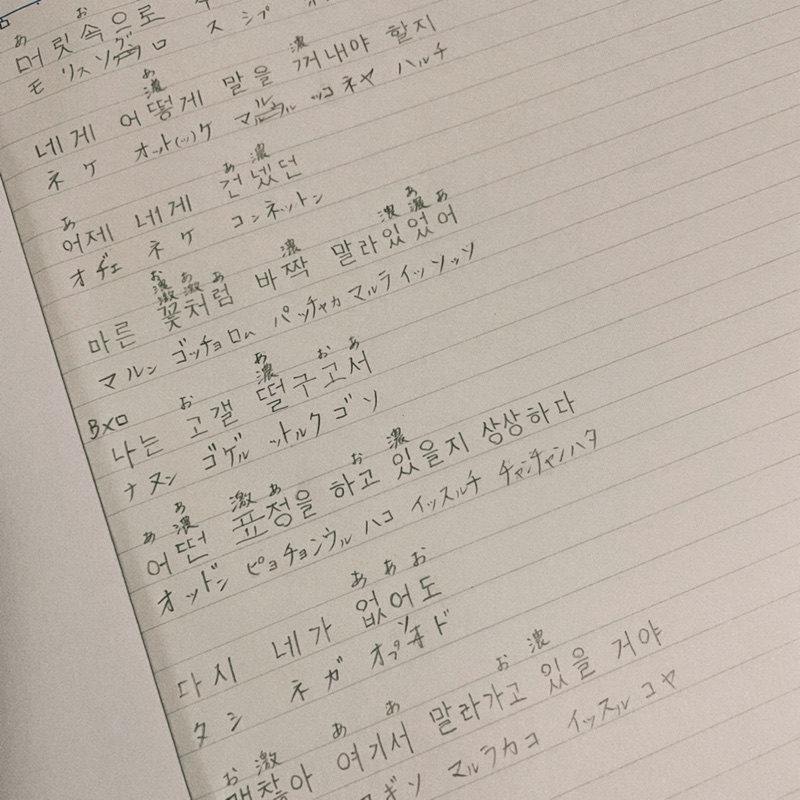 あ お
머릿속으로
モ リッ ソグウロ ス シプ
あ濃 濃
네게 어떻게 말을 꺼내야 할지
ネ ケ オット(ッ)ケ マルル ッコネヤ ハルチ
あ あ 濃
어제 네게 건넸던
オヂェ ネ ケ コンネットン
お濃激 あ激 あ 濃 濃 あ濃 あ
마른 꽃처럼 바짝 말라있었어
マルン ゴッチョロム パッチャカ マルライッソッソ
BXロ お あ濃 お あ
나는 고갤 떨구고서
ナヌン ゴゲル ットルクゴソ
あ あ濃 激 あ お 濃
어떤 표정을 하고 있을지 상상하다
オットン ピョチョンウル ハコ イッスルチ チャンチャンハタ
あ あ お
다시 네가 없어도
タシ ネガ オプソド
お 激 あ あ お 濃
괜찮아 여기서 말라가고 있을 거야
ヨギソ マルラカコ イッスル コヤ